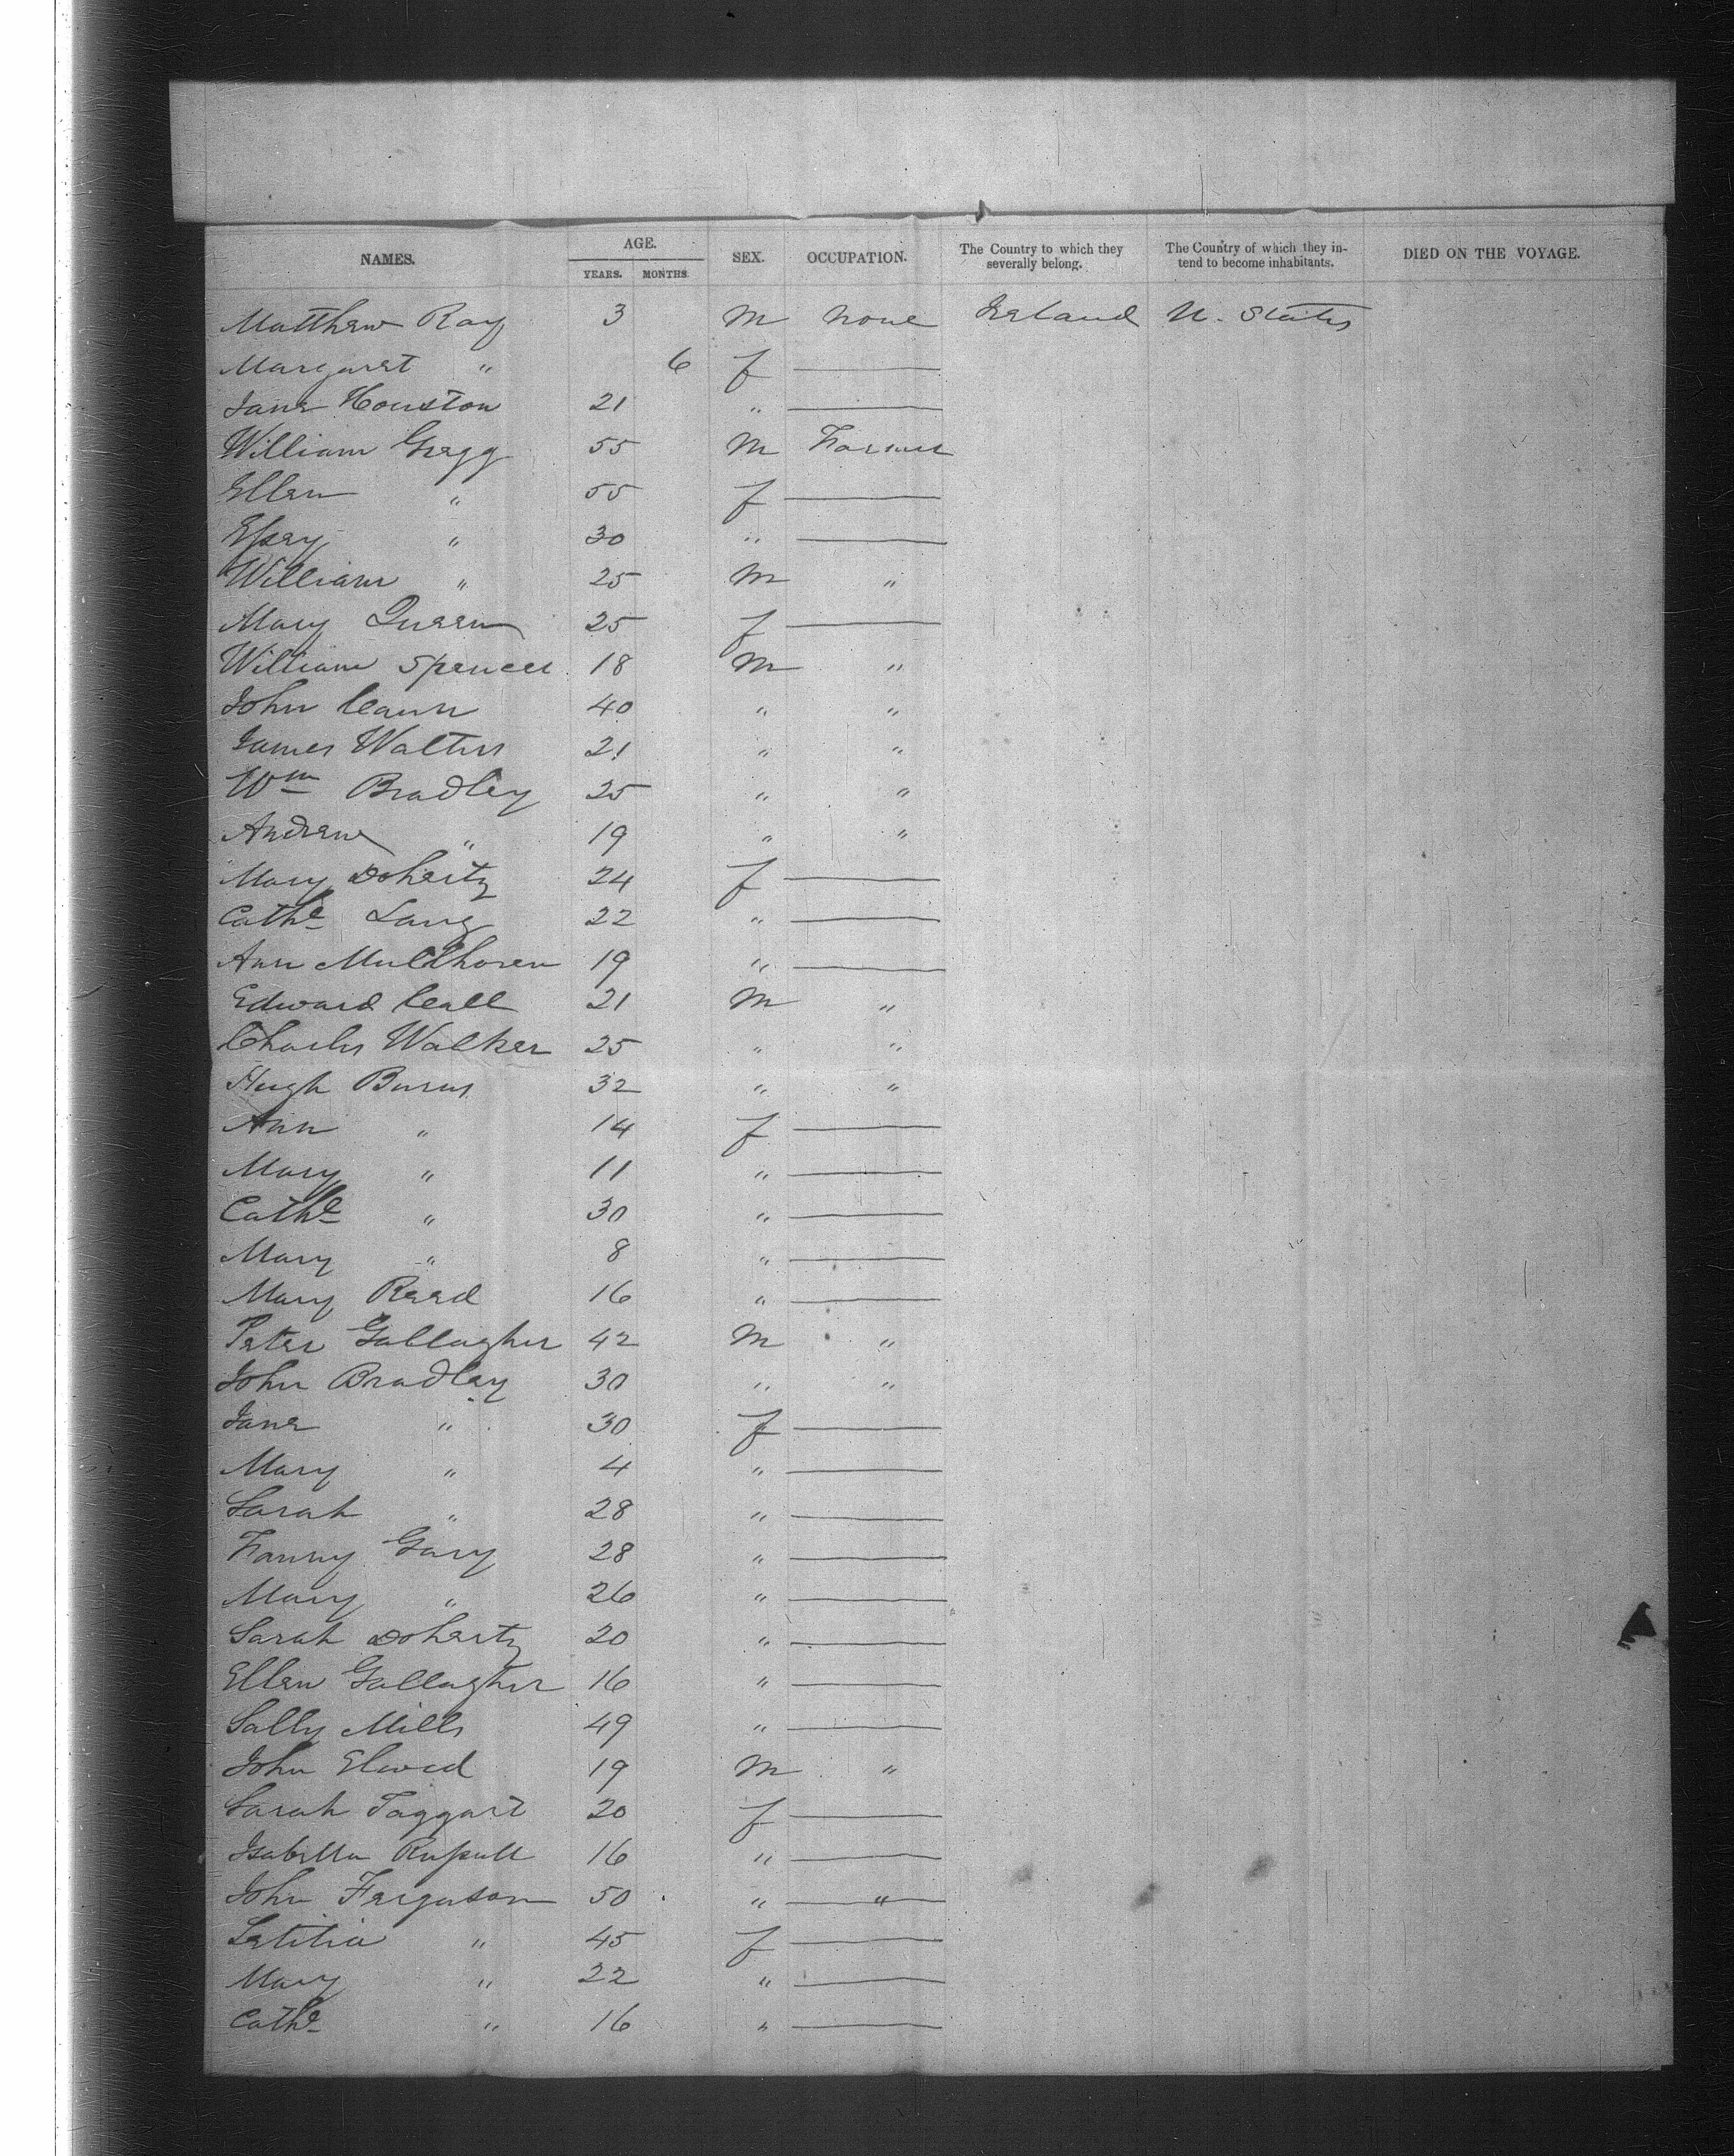 NAMES. AGE. YEARS. MONTHS. SEX. OCCUPATION. The Country to which they severally belong. The Country of which they intend to become inhabitants. DIED ON THE VOYAGE.
Matthew Ray 3 M None Ireland U. States
Margaret " 6 f
Jane Houston 21 "
William Gregg 55 M Farmer
Ellen " 55 f
Essey " 30 "
William " 25 M "
Mary Queen 25 f
William Spencer 18 M "
John Cann 40 " "
James Walters 21 " "
Wm Bradley 25 " "
Andrew " 19 " "
Mary Doherty 24 f
Cathe Lang 22 "
Ann Muldhoren 19 "
Edward Call 21 M "
Charles Walker 25 " "
Hugh Burns 32 " "
Ann " 14 f
Mary " 11 "
Cathe " 30 "
Mary " 8 "
Mary Reed 16 "
Peter Gallagher 42 M "
John Bradley 30 " "
Jane " 30 f
Mary " 4 "
Sarah " 28 "
Fanny Gary 28 "
Mary " 26 "
Sarah Doherty 20 "
Ellen Gallagher 16 "
Sally Mills 49 "
John Elwed 19 M "
Sarah Taggart 20 f
Isabella Russell 16 "
John Ferguson 50 " "
Letitia " 45 f
Mary " 22 "
Cathe " 16 "